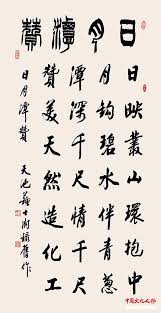 日月潭贊
日映叢山環抱中
月鈎碧水伴青蔥
潭深千尺情千尺
贊美天然造化工
日月潭贊
天池
中国文化人物